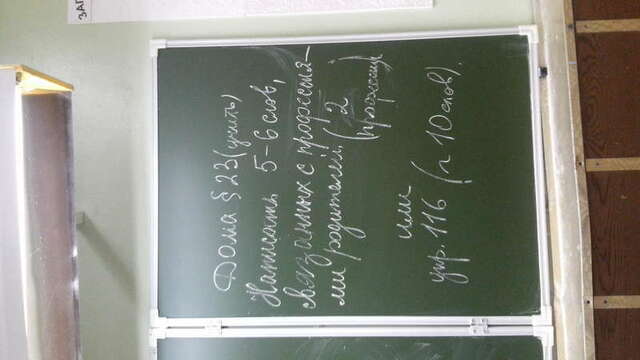 ЗАП
Дома § 23 (учить)
Написать 5-6 слов,
связанных с профессия-
ми родителей. ( 2
профессии)
или
упр. 116 (п. 10 слов).